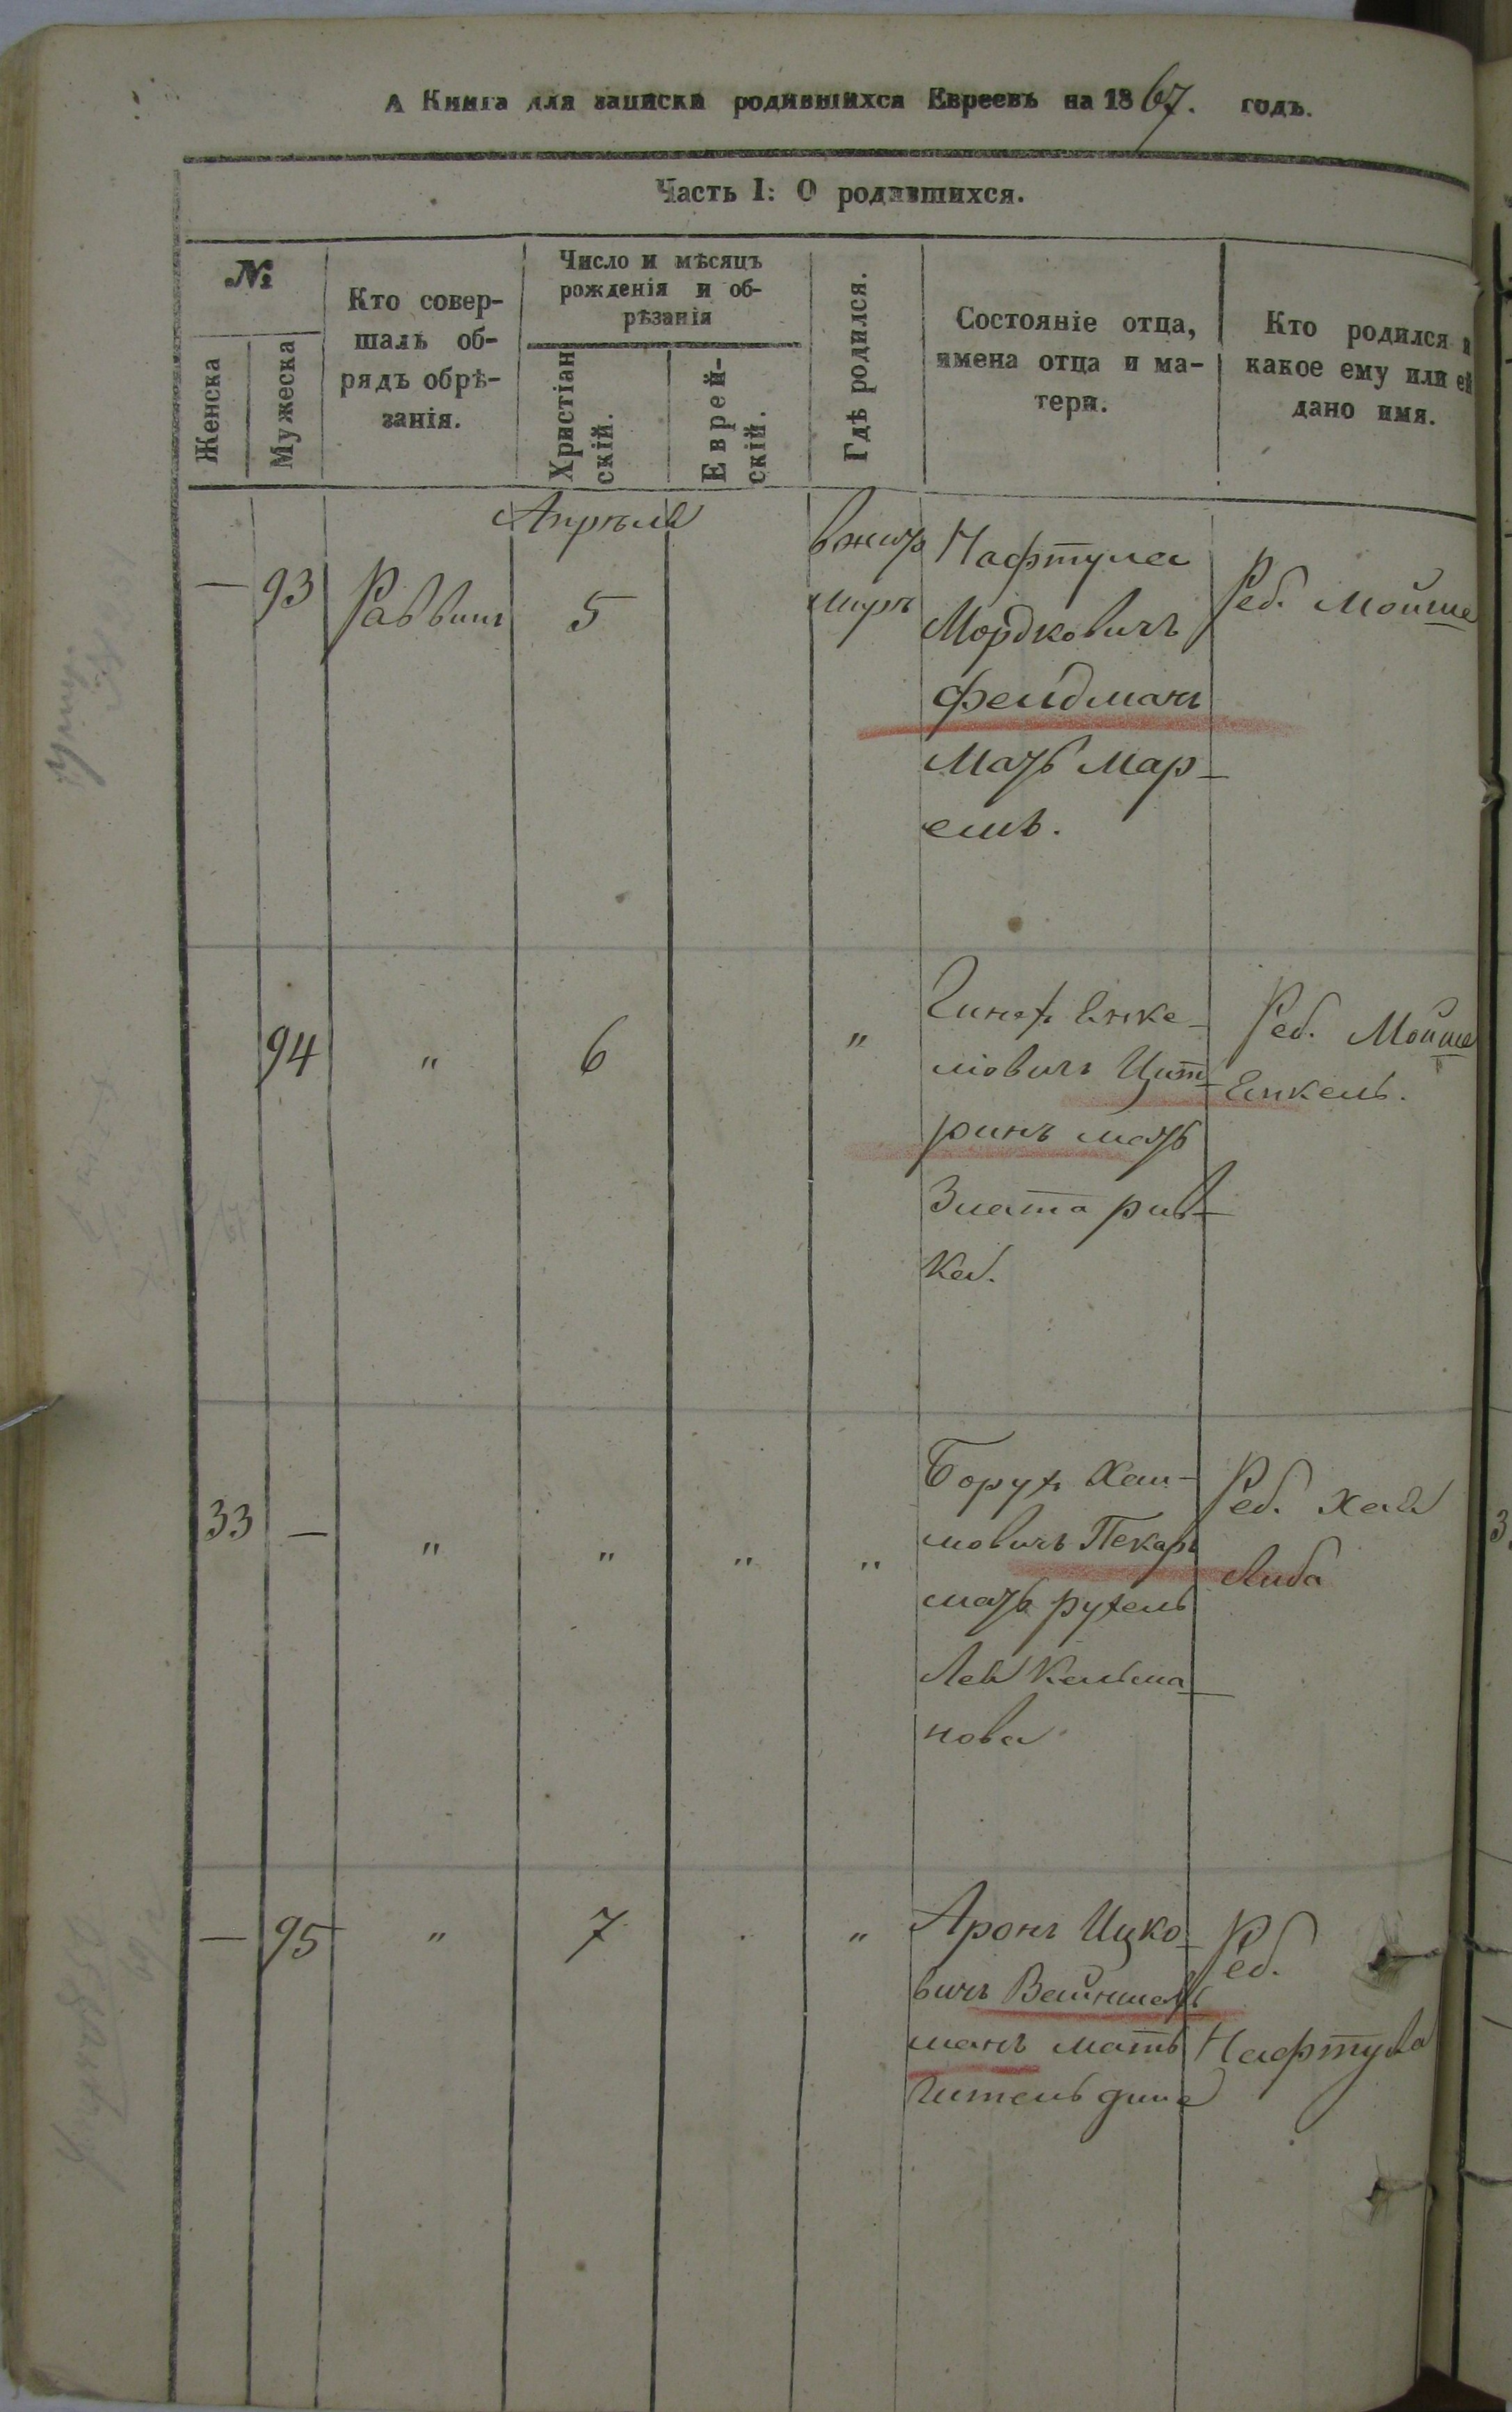 А Книга для записки родившихся Евреевъ на 1867. годъ.
Часть I: О родившихся.
№
Женска
Мужеска
Кто совер-
шалъ об-
рядъ обрѣ-
занія.
Число и мѣсяцъ
рожденія и об-
рѣзанія
Христіан
скій.
Еврей-
скій.
Гдѣ родился.
Состояніе отца,
имена отца и ма-
тери.
Кто родился и
какое ему или ей
дано имя.
Апрѣля
— 93 Раввинъ 5
вжито
миръ
Нафтула
Мордковичъ
Фелдманъ
мать Мар-
емъ.
Реб. Мойше
94 " 6 "
Енке-
ловичъ Цит-
ринъ мать
Злата рив-
ка.
Реб. Мойше
Енкель.
33 — " " " "
Борухъ Хаи-
мовичъ Пекарь
мать рухель
Лея Кельма-
нова
Реб. Хая
Либа
— 95 " 7 "
Аронъ Ицко-
вичъ Вайншель
манъ мать
Гитель дина
Реб.
Нафтула